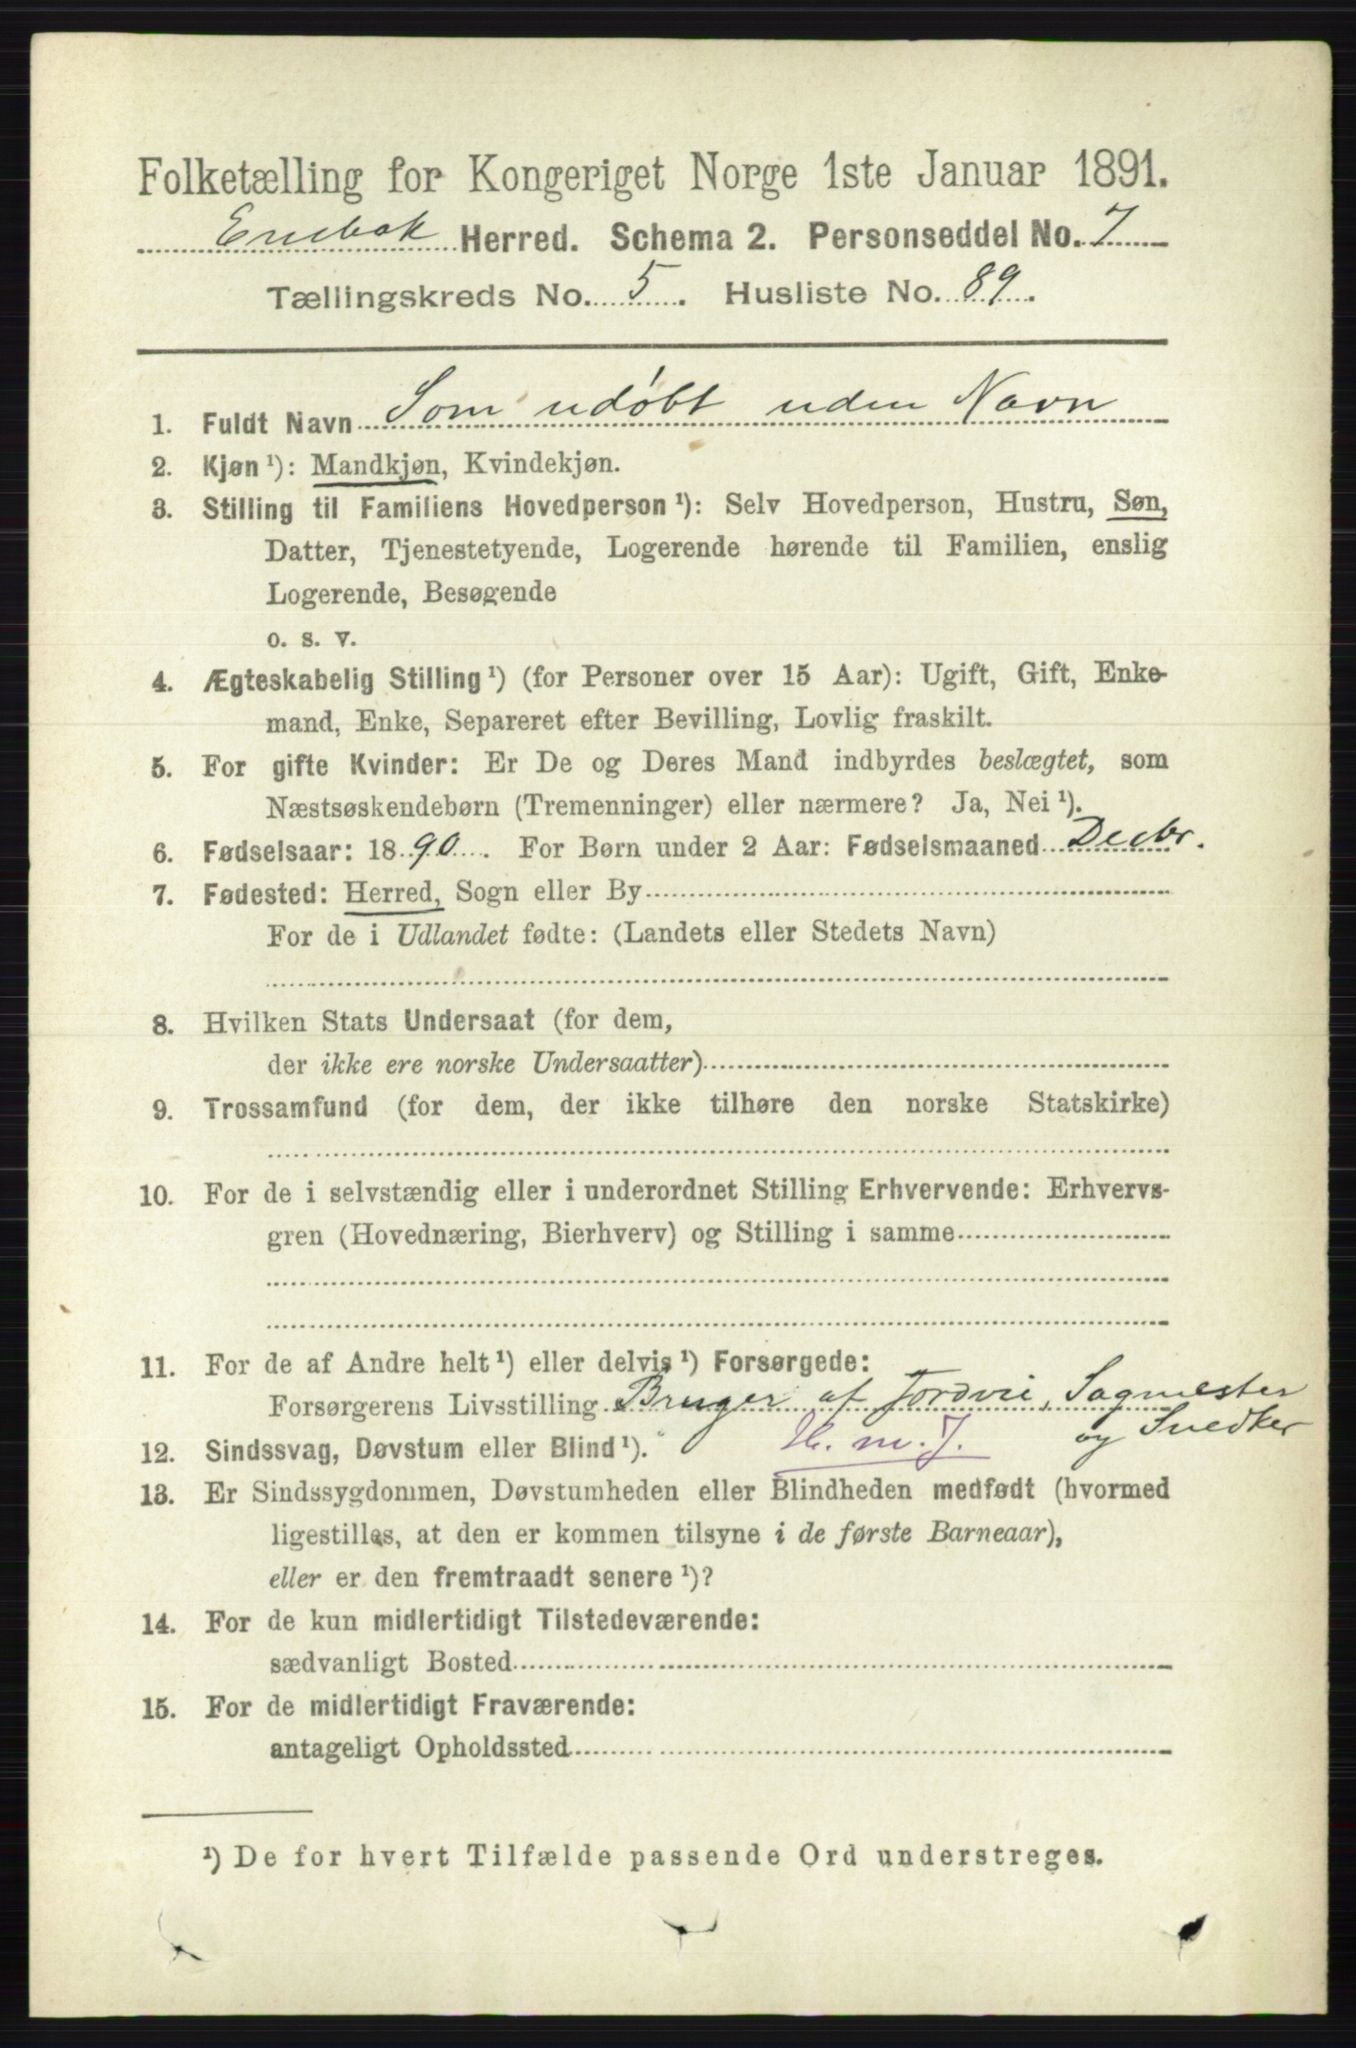 Folketælling for Kongeriget Norge 1ste Januar 1891.
Enebak Herred. Schema 2. Personseddel No. 7
Tællingskreds No. 5. Husliste No. 89.
1. Fuldt Navn Som udøbt uden Navn
2. Kjøn ¹): Mandkjøn, Kvindekjøn.
3. Stilling til Familiens Hovedperson ¹): Selv Hovedperson, Hustru, Søn,
Datter, Tjenestetyende, Logerende hørende til Familien, enslig
Logerende, Besøgende
o. s. v.
4. Ægteskabelig Stilling ¹) (for Personer over 15 Aar): Ugift, Gift, Enke-
mand, Enke, Separeret efter Bevilling, Lovlig fraskilt.
5. For gifte Kvinder: Er De og Deres Mand indbyrdes beslægtet, som
Næstsøskendebørn (Tremenninger) eller nærmere? Ja, Nei ¹).
6. Fødselsaar: 1890. For Børn under 2 Aar: Fødselsmaaned Decbr.
7. Fødested: Herred, Sogn eller By
For de i Udlandet fødte: (Landets eller Stedets Navn)
8. Hvilken Stats Undersaat (for dem,
der ikke ere norske Undersaatter)
9. Trossamfund (for dem, der ikke tilhøre den norske Statskirke)
10. For de i selvstændig eller i underordnet Stilling Erhvervende: Erhvervs-
gren (Hovednæring, Bierhverv) og Stilling i samme
11. For de af Andre helt ¹) eller delvis ¹) Forsørgede:
Forsørgerens Livsstilling Bruger af Jordvei, Sagmester
og Snedker
12. Sindssvag, Døvstum eller Blind ¹). H. m. J.
13. Er Sindssygdommen, Døvstumheden eller Blindheden medfødt (hvormed
ligestilles, at den er kommen tilsyne i de første Barneaar),
eller er den fremtraadt senere ¹)?
14. For de kun midlertidigt Tilstedeværende:
sædvanligt Bosted
15. For de midlertidigt Fraværende:
antageligt Opholdssted
¹) De for hvert Tilfælde passende Ord understreges.